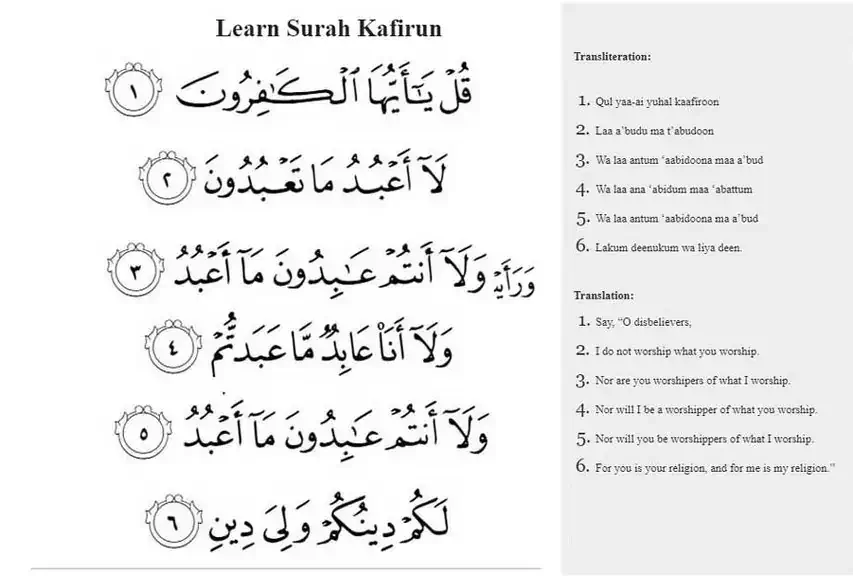 Learn Surah Kafirun
قُلۡ يَـٰٓأَيُّهَا ٱلۡكَـٰفِرُونَ ١
لَآ أَعۡبُدُ مَا تَعۡبُدُونَ ٢
وَلَآ أَنتُمۡ عَـٰبِدُونَ مَآ أَعۡبُدُ ٣
وَلَآ أَنَا۠ عَابِدٌ مَّا عَبَدتُّمۡ ٤
وَلَآ أَنتُمۡ عَـٰبِدُونَ مَآ أَعۡبُدُ ٥
لَكُمۡ دِينُكُمۡ وَلِىَ دِينِ ٦
Transliteration:
1. Qul yaa-ai yuhal kaafiroon
2. Laa a’budu ma t’abudoon
3. Wa laa antum ‘aabidoona maa a’bud
4. Wa laa ana ‘abidum maa ‘abattum
5. Wa laa antum ‘aabidoona ma a’bud
6. Lakum deenukum wa liya deen.
Translation:
1. Say, “O disbelievers,
2. I do not worship what you worship.
3. Nor are you worshipers of what I worship.
4. Nor will I be a worshipper of what you worship.
5. Nor will you be worshippers of what I worship.
6. For you is your religion, and for me is my religion.”